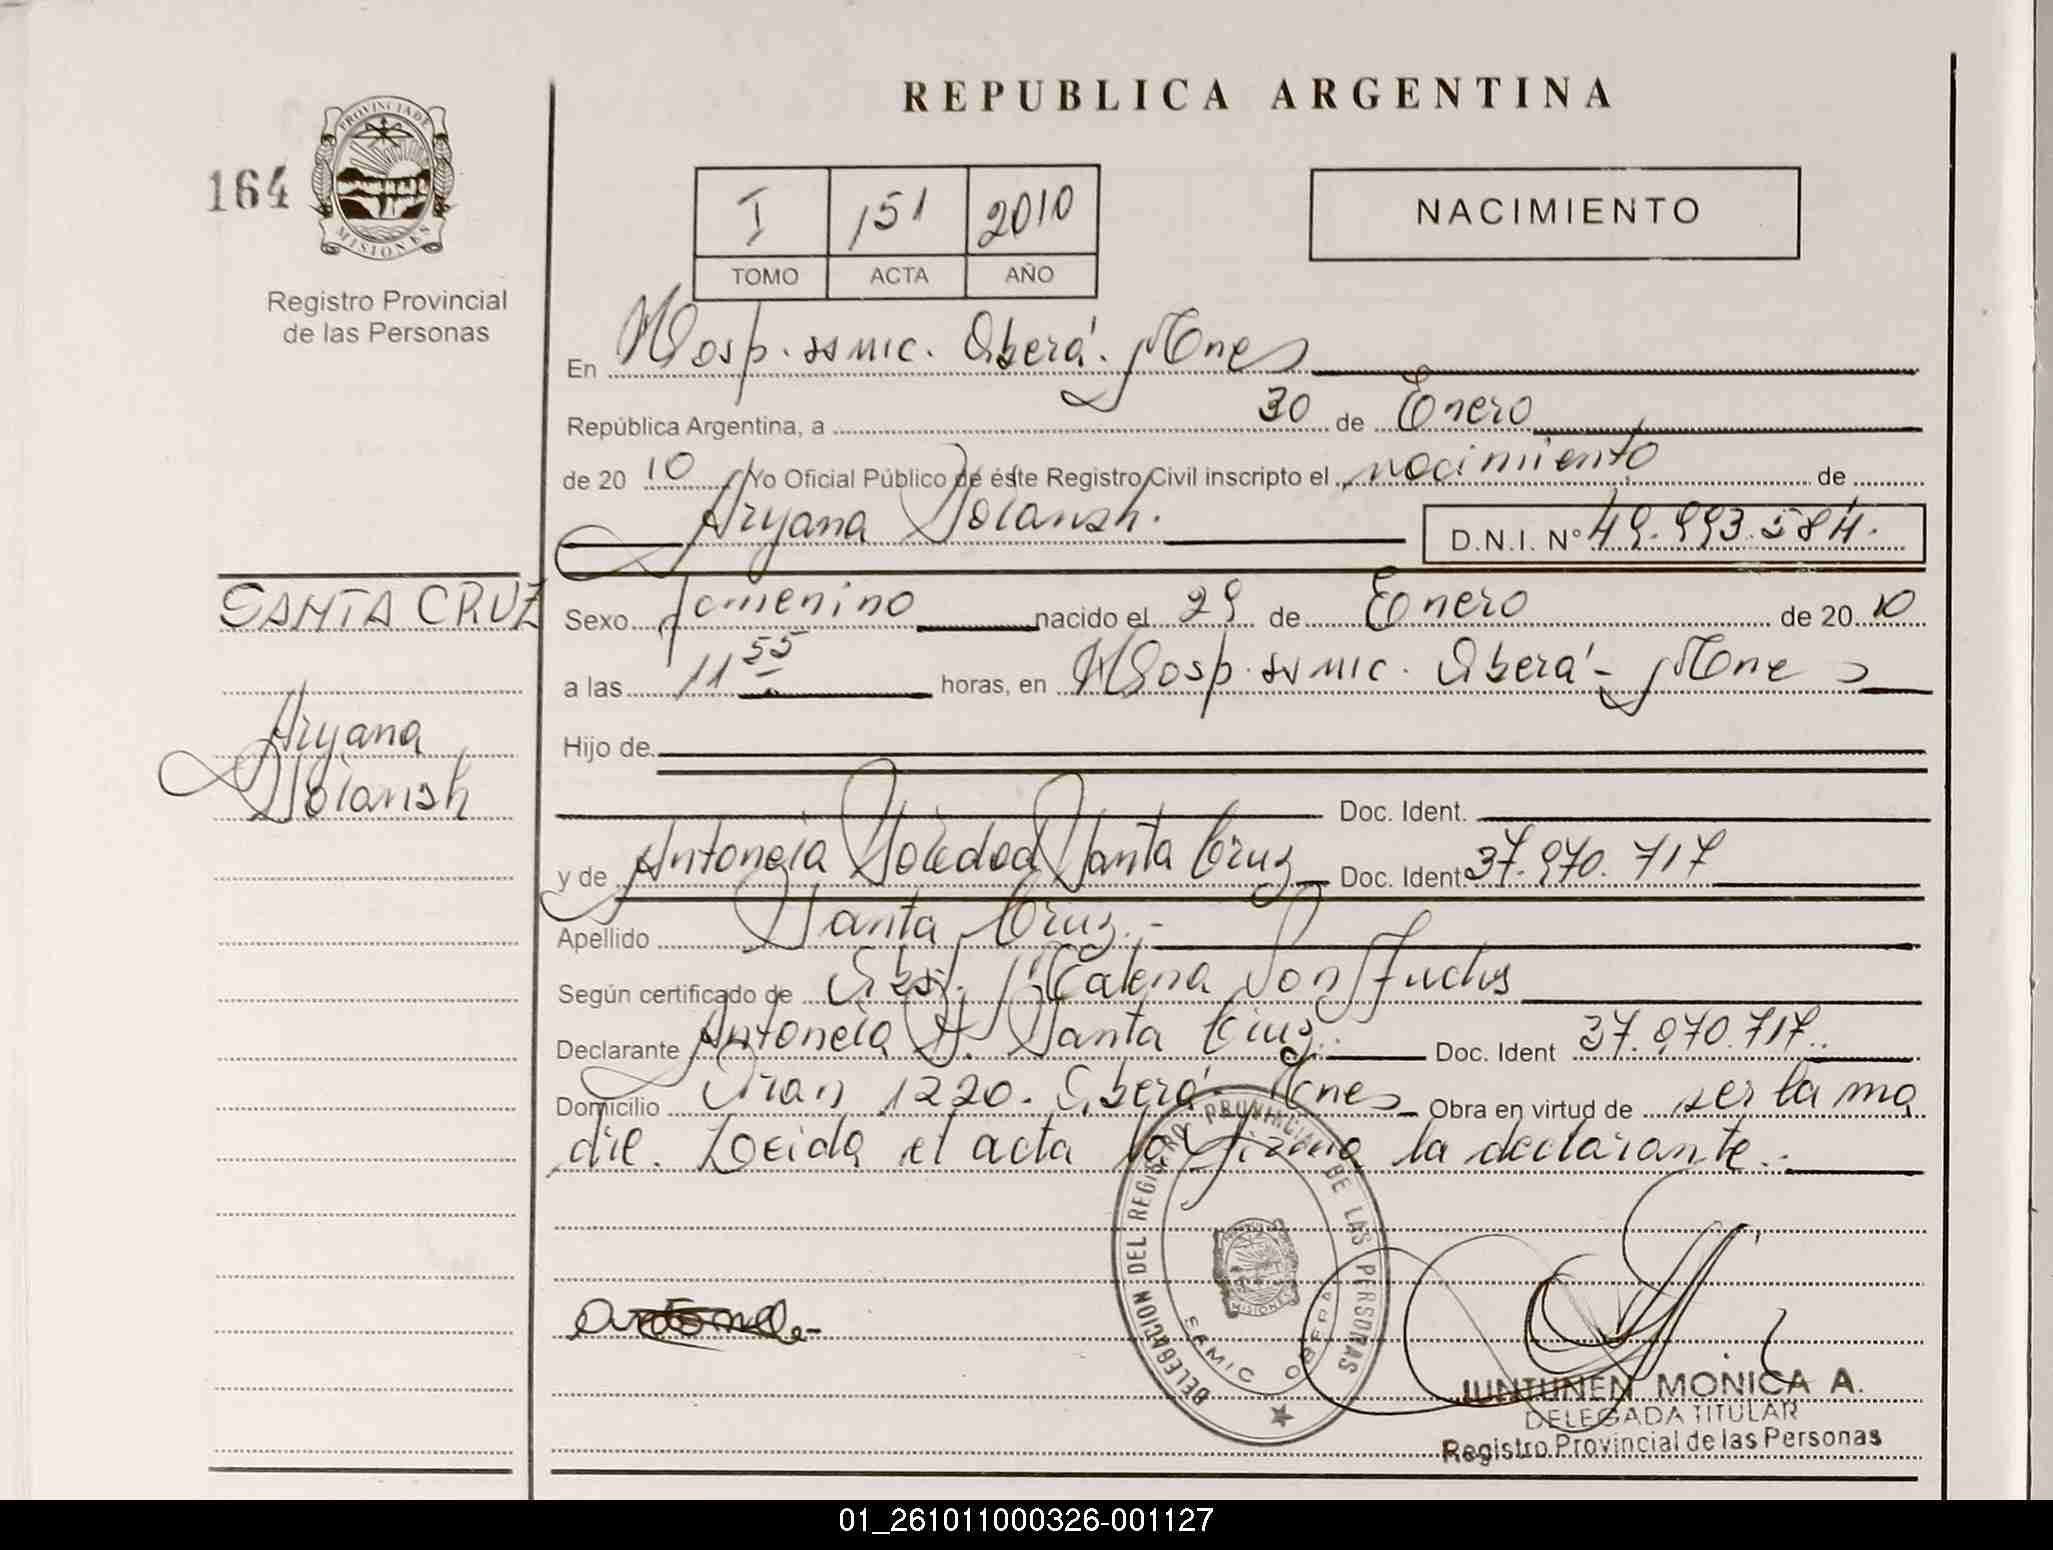 REPUBLICA ARGENTINA
164
PROVINCIA DE
MISIONES
Registro Provincial
de las Personas
I 151 2010
TOMO ACTA AÑO
NACIMIENTO
En Hosp. samic. Oberá. Mnes
República Argentina, a 30 de Enero
de 20 10 Yo Oficial Público de éste Registro Civil inscripto el nacimiento de
Aryana Solansh.
D.N.I. Nº 49.993.584.
SANTA CRUZ
Aryana
Solansh
Sexo femenino nacido el 29 de Enero de 20 10
a las 11 55 horas, en Hosp. samic. Oberá - Mnes
Hijo de
Doc. Ident.
y de Antoneia Soledad Santa Cruz Doc. Ident. 37.970.717
Apellido Santa Cruz.-
Según certificado de Obst. Malena Von
Declarante Antoneia S. Santa Cruz. Doc. Ident 37.970.717.
Domicilio 1220. Oberá - Mnes Obra en virtud de ser la ma
dre. Leida el acta la firma la declarante.
DELEGACION DEL REGISTRO PROVINCIAL DE LAS PERSONAS
SAMIC OBERA
MISIONES
JUNTUNEN MONICA A.
DELEGADA TITULAR
Registro Provincial de las Personas
01_261011000326-001127